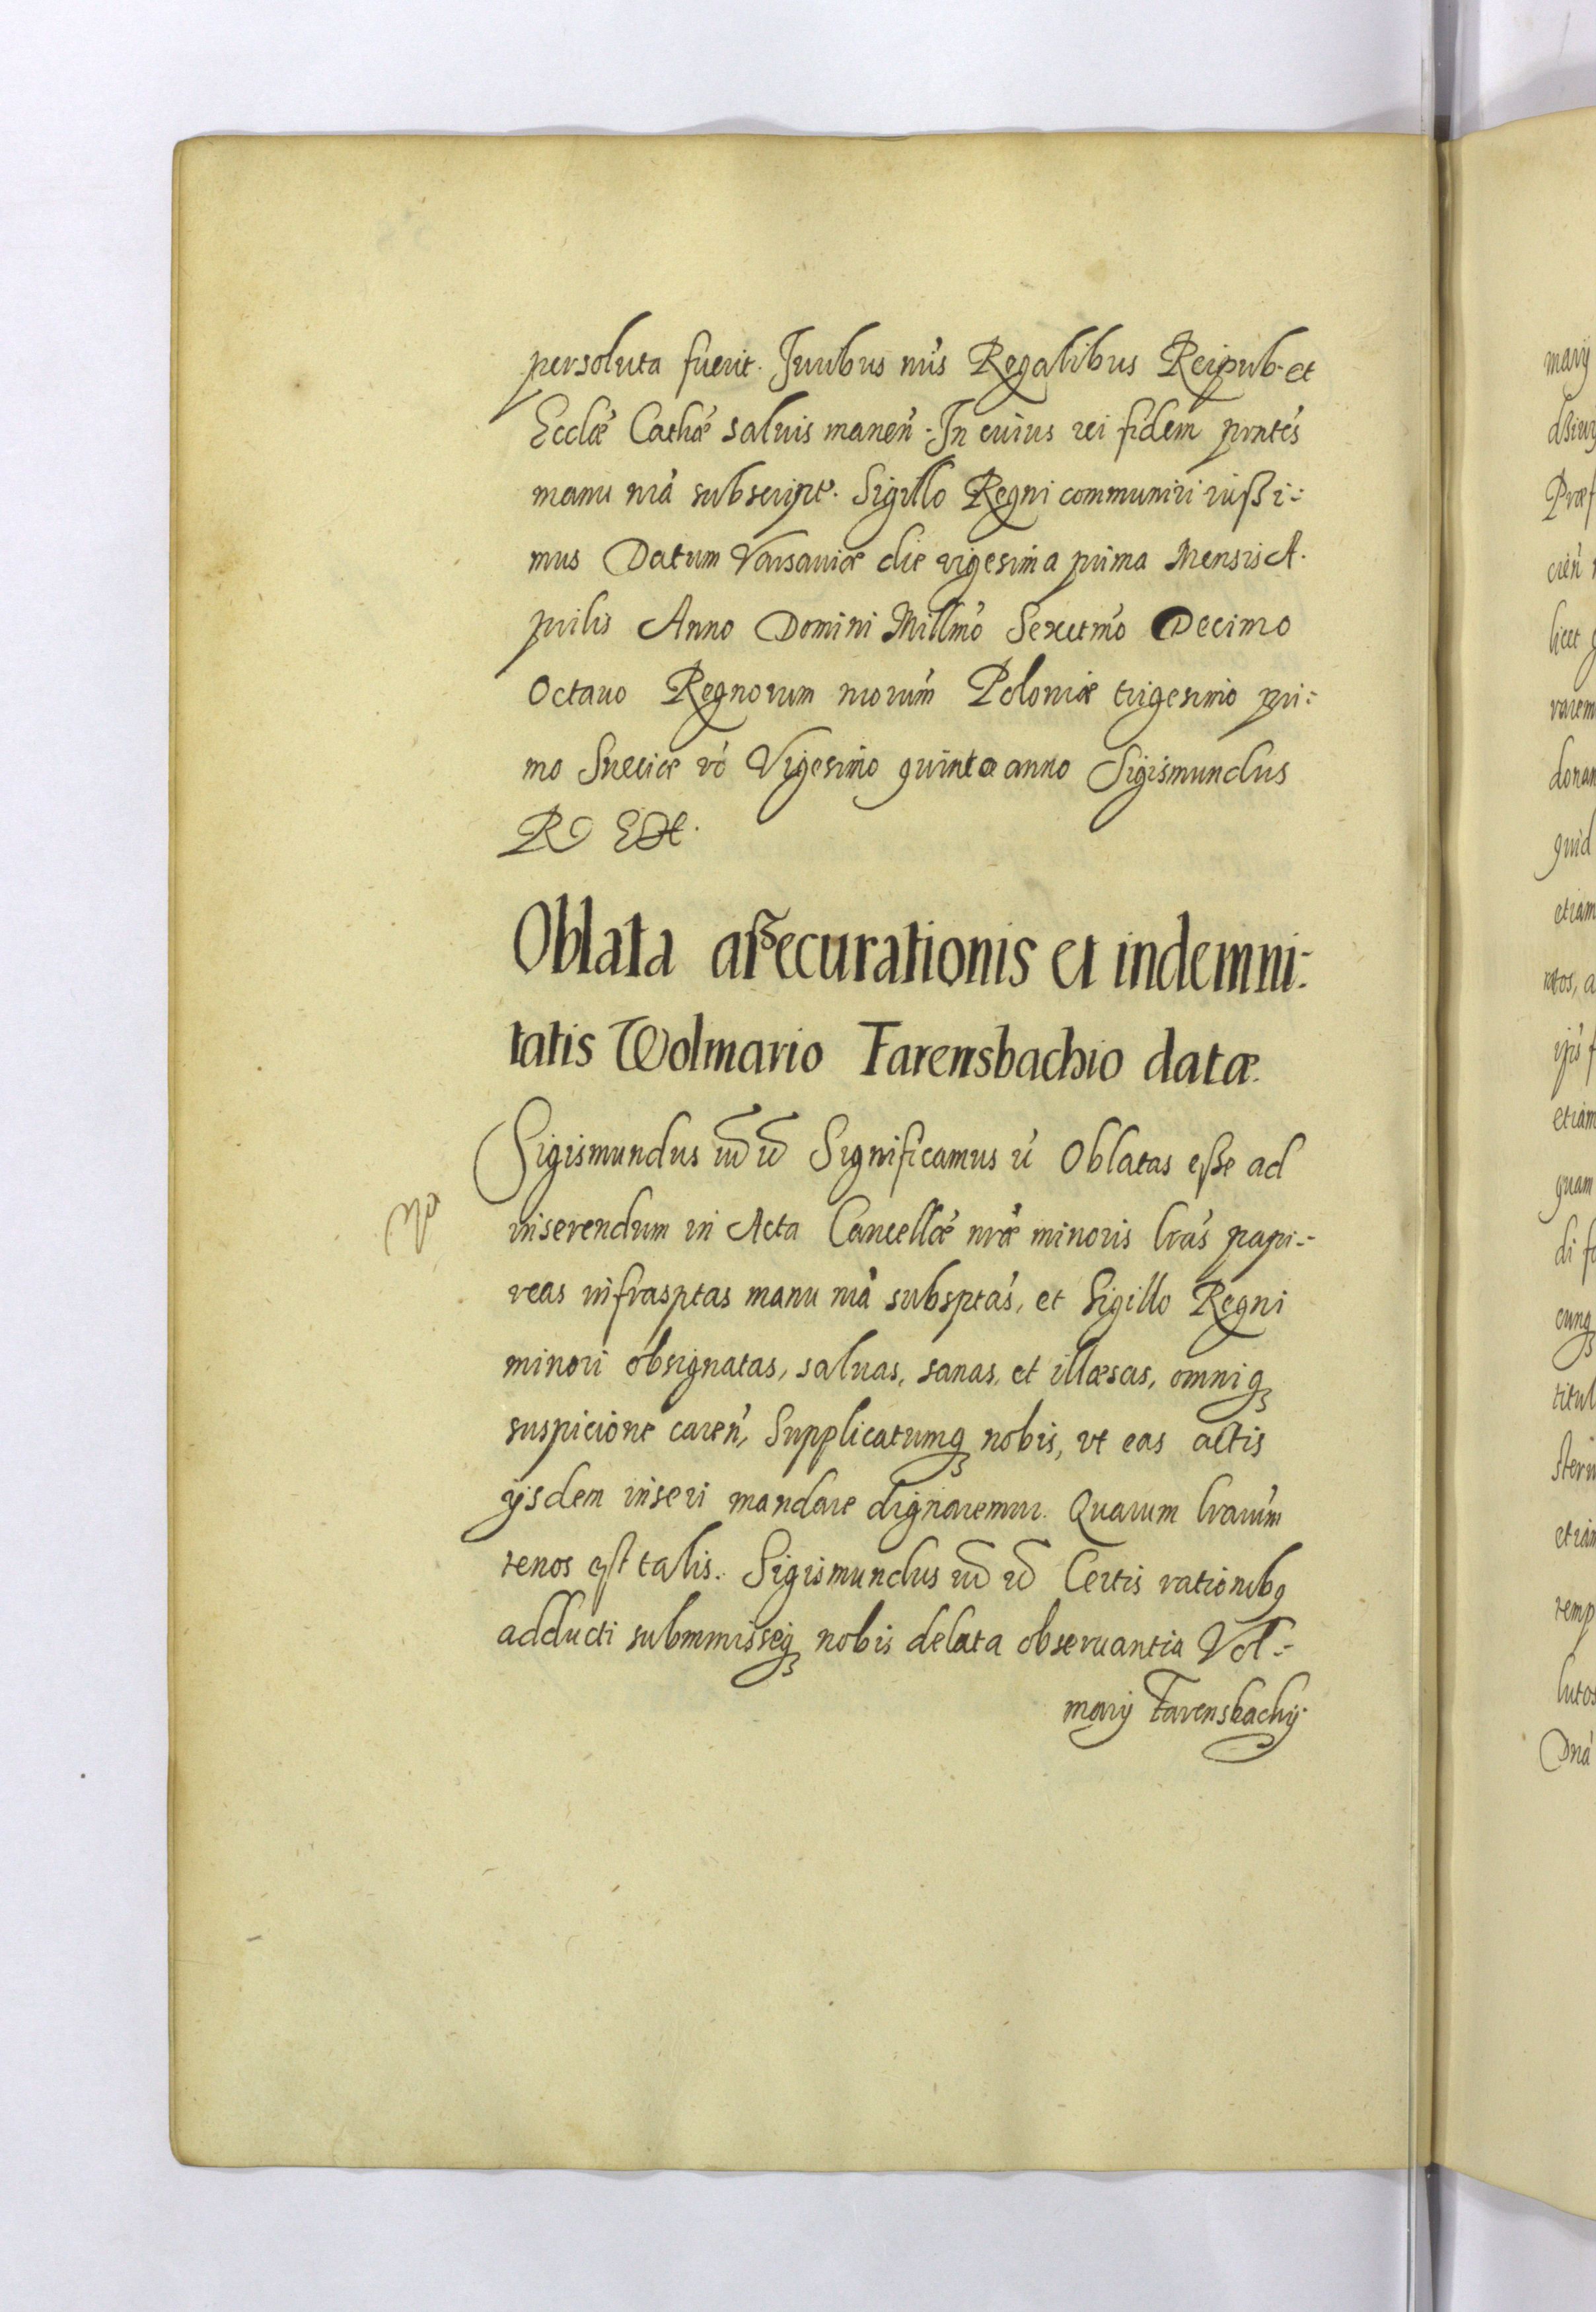 persoluta fuerit. Juribus nris Regalibus Reipub. et
Ecclæ Cathæ saluis manen. In cuius rei fidem prntes
manu nra subscript. Sigillo Regni communiri iussi-
mus Datum Varsauiæ die vigesima prima Mensis A.
prilis Anno Domini Millmo Sexctmo Decimo
Octauo Regnorum nrorum Poloniæ trigesimo pri:
mo Sueciæ vo Vigesimo quinto anno Sigismundus
Rex
Oblata assecurationis et indemni:
tatis Wolmario Farensbachio datæ.
Sigismundus Significamus Oblatas esse ad
inserendum in Acta Cancellæ nræ minoris lras papi-
reas infrasptas manu nra subsptas, et Sigillo Regni
minori obsignatas, saluas, sanas, et illæsas, omniq
suspicione caren, Supplicatumq nobis, vt eas actis
ijsdem inseri mandare dignaremur. Quarum lrarum
tenos est talis. Sigismundus Certis rationibq
adducti submmisseq nobis delata obseruantia Vol-
marij Farensbachij
marij
Præf
licet
donan
quid
etiam
etiam
quam
cunq
titul
temp
lutos
Dna